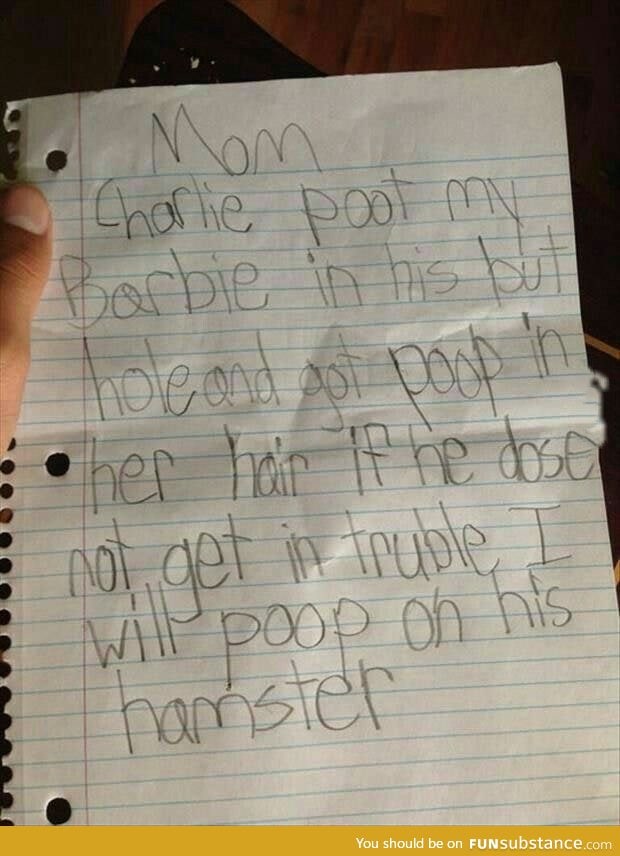 Mom
Charlie poot my
Barbie in his but
hole and got poop in
her hair if he dose
not get in truble I
will poop on his
hamster
You should be on FUNsubstance.com